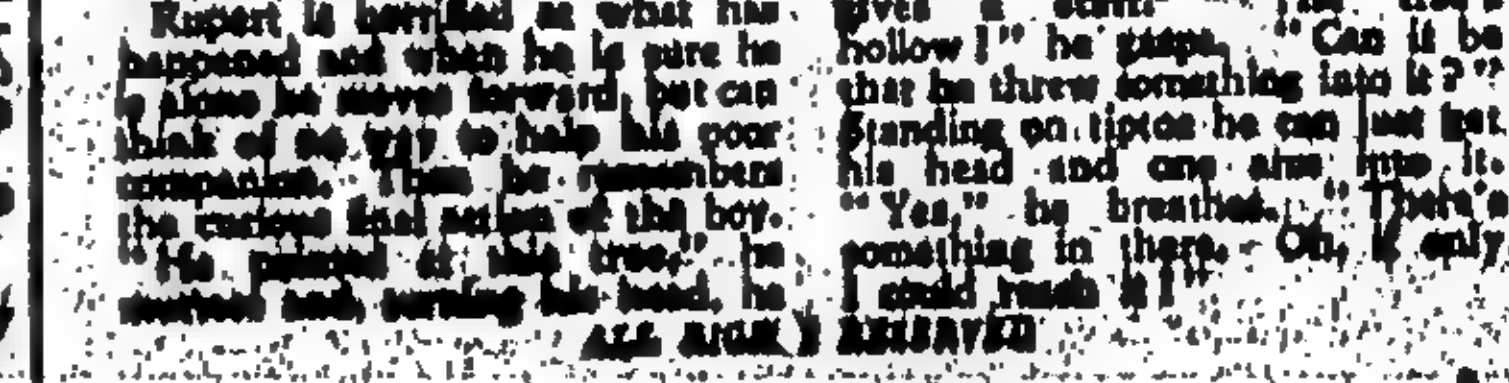 Rupert is horrified at what has
happened and when he is sure he
is alone he moves forward, but can
think of no way to help his poor
companion. Then he remembers
the curious final action of the boy.
"He pointed at this tree," he
and, turning his head, he
gives a
hollow!" he gasps. "Can it be
that he threw something into it?"
Standing on tiptoe he can just get
his head and one arm into it.
"Yes," he breathed. "There's
something in there. Oh, if only
I could reach it!"
ALL RIGHTS RESERVED